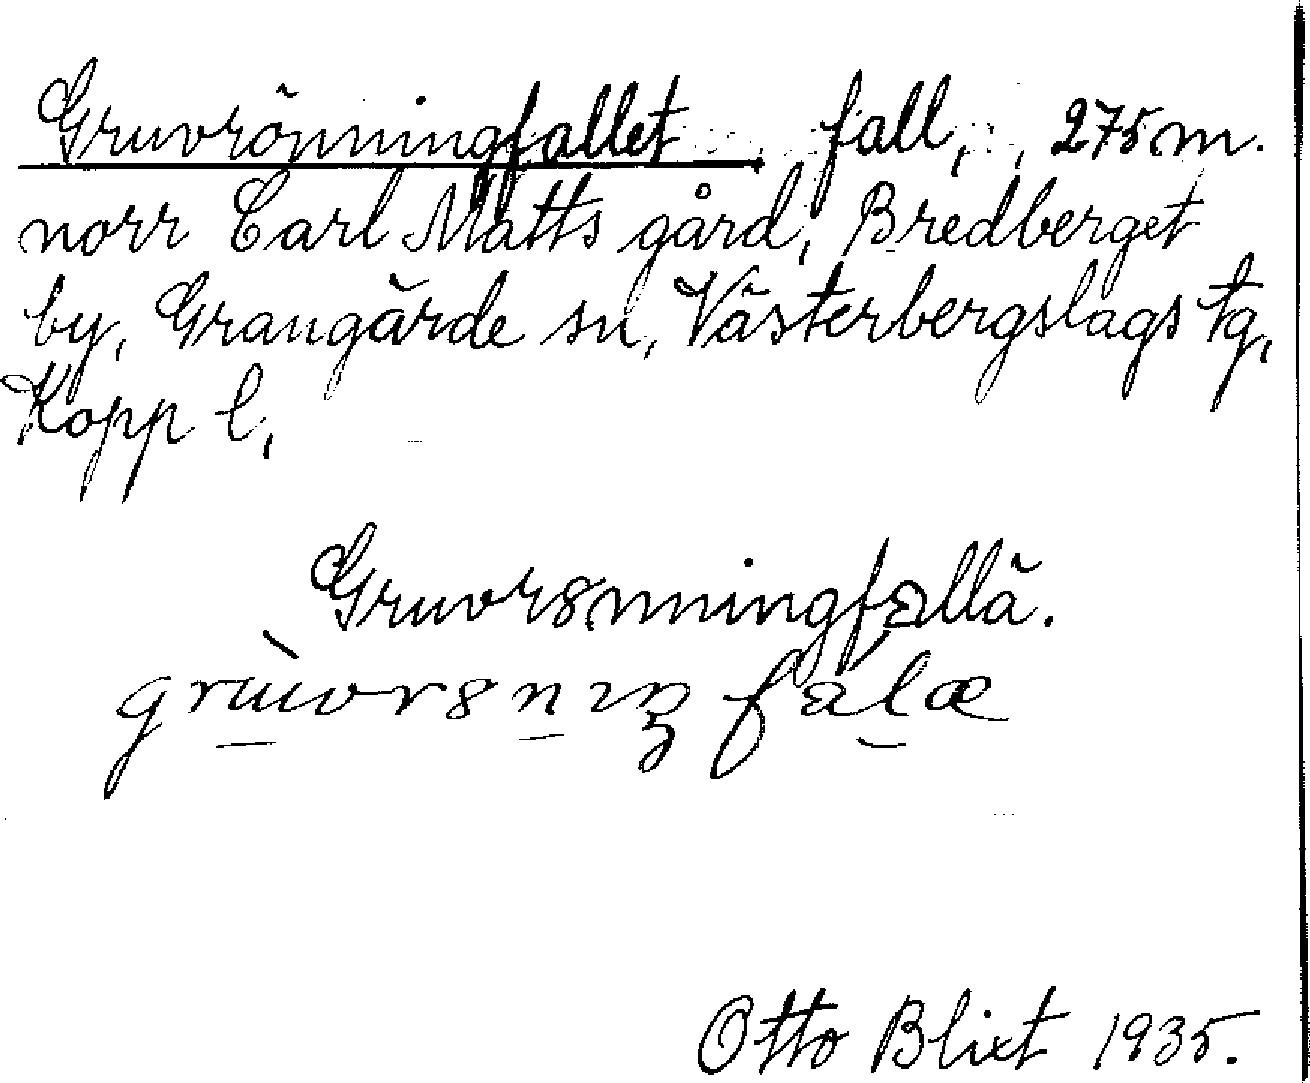 Gruvrönningfallet fall, 275 m.
norr Carl Matts gård, Bredberget
by, Grangärde sn, Västerbergslags tg,
Kopp l,
Gruvr8nningfallä.
Otto Blixt 1935.